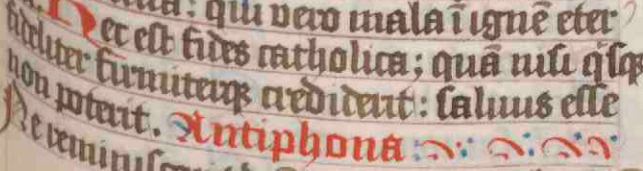 vita: qui vero mala ī ignē eter
Hec est fides catholica; quā nisi qisqꝫ
fideliter firmiterqꝫ crediderit: saluus esse
non poterit. Antiphona
Ne reminisc